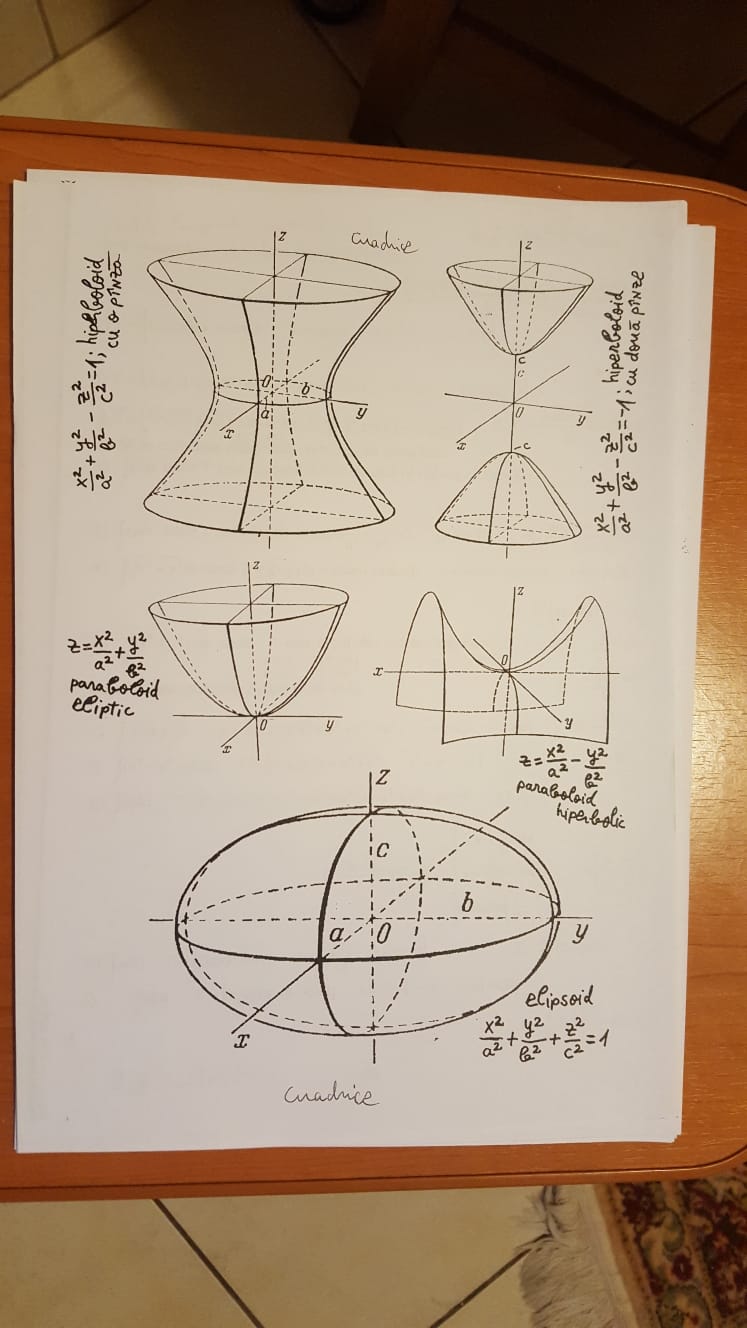 cuadrice
z
x
y
O
a
b
x²/a² + y²/b² - z²/c² = 1; hiperboloid
cu o pînză
z
c
c
O
x
y
-c
x²/a² + y²/b² - z²/c² = -1; hiperboloid
cu două pînze
z
O
x
y
z = x²/a² + y²/b²
paraboloid
eliptic
z
x
O
y
z = x²/a² - y²/b²
paraboloid
hiperbolic
z
c
b
a
O
y
x
elipsoid
x²/a² + y²/b² + z²/c² = 1
cuadrice